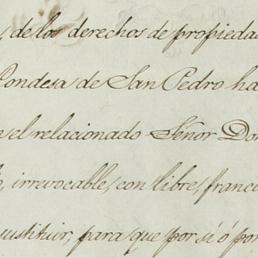 de los derechos de propieda
Condesa de San Pedro ha
el relacionado Señor Don
irrevocable, con libre, franc
ustituir, para que por sí ó por